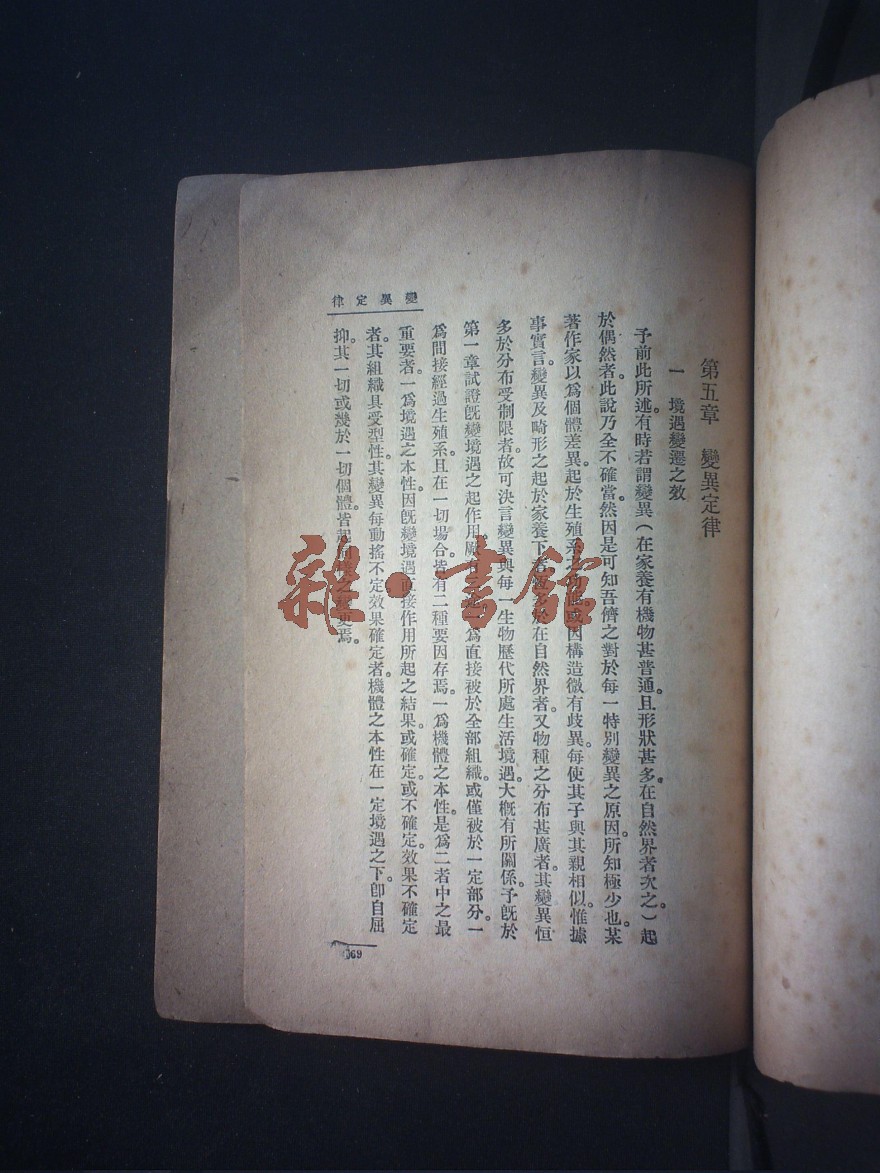 第五章　變異定律
一　境遇變遷之效
予前此所述。有時若謂變異(在家養有機物甚普通。且形狀甚多。在自然界者次之。)起
於偶然者。此說乃全不確當。然因是可知吾儕之對於每一特別變異之原因。所知極少也。某
著作家以爲個體差異。起於生殖系之功能。或因構造微有歧異。每使其子與其親相似。惟據
事實言。變異及畸形之起於家養下者。恆多於在自然界者。又物種之分布甚廣者。其變異恒
多於分布受制限者。故可決言變異與每一生物歷代所處生活境遇。大槪有所關係。予旣於
第一章試證旣變境遇之起作用。爲直接被於全部組織。或僅被於一定部分。一
爲間接經過生殖系。且在一切場合。皆有二種要因存焉。一爲機體之本性。是爲二者中之最
重要者。一爲境遇之本性。因旣變境遇直接作用所起之結果。或確定。或不確定。效果不確定
者。其組織具受型性。其變異每動搖不定。效果確定者。機體之本性在一定境遇之下。卽自屈
抑。其一切或幾於一切個體。皆起變更焉。
變異定律
069
雜·書館